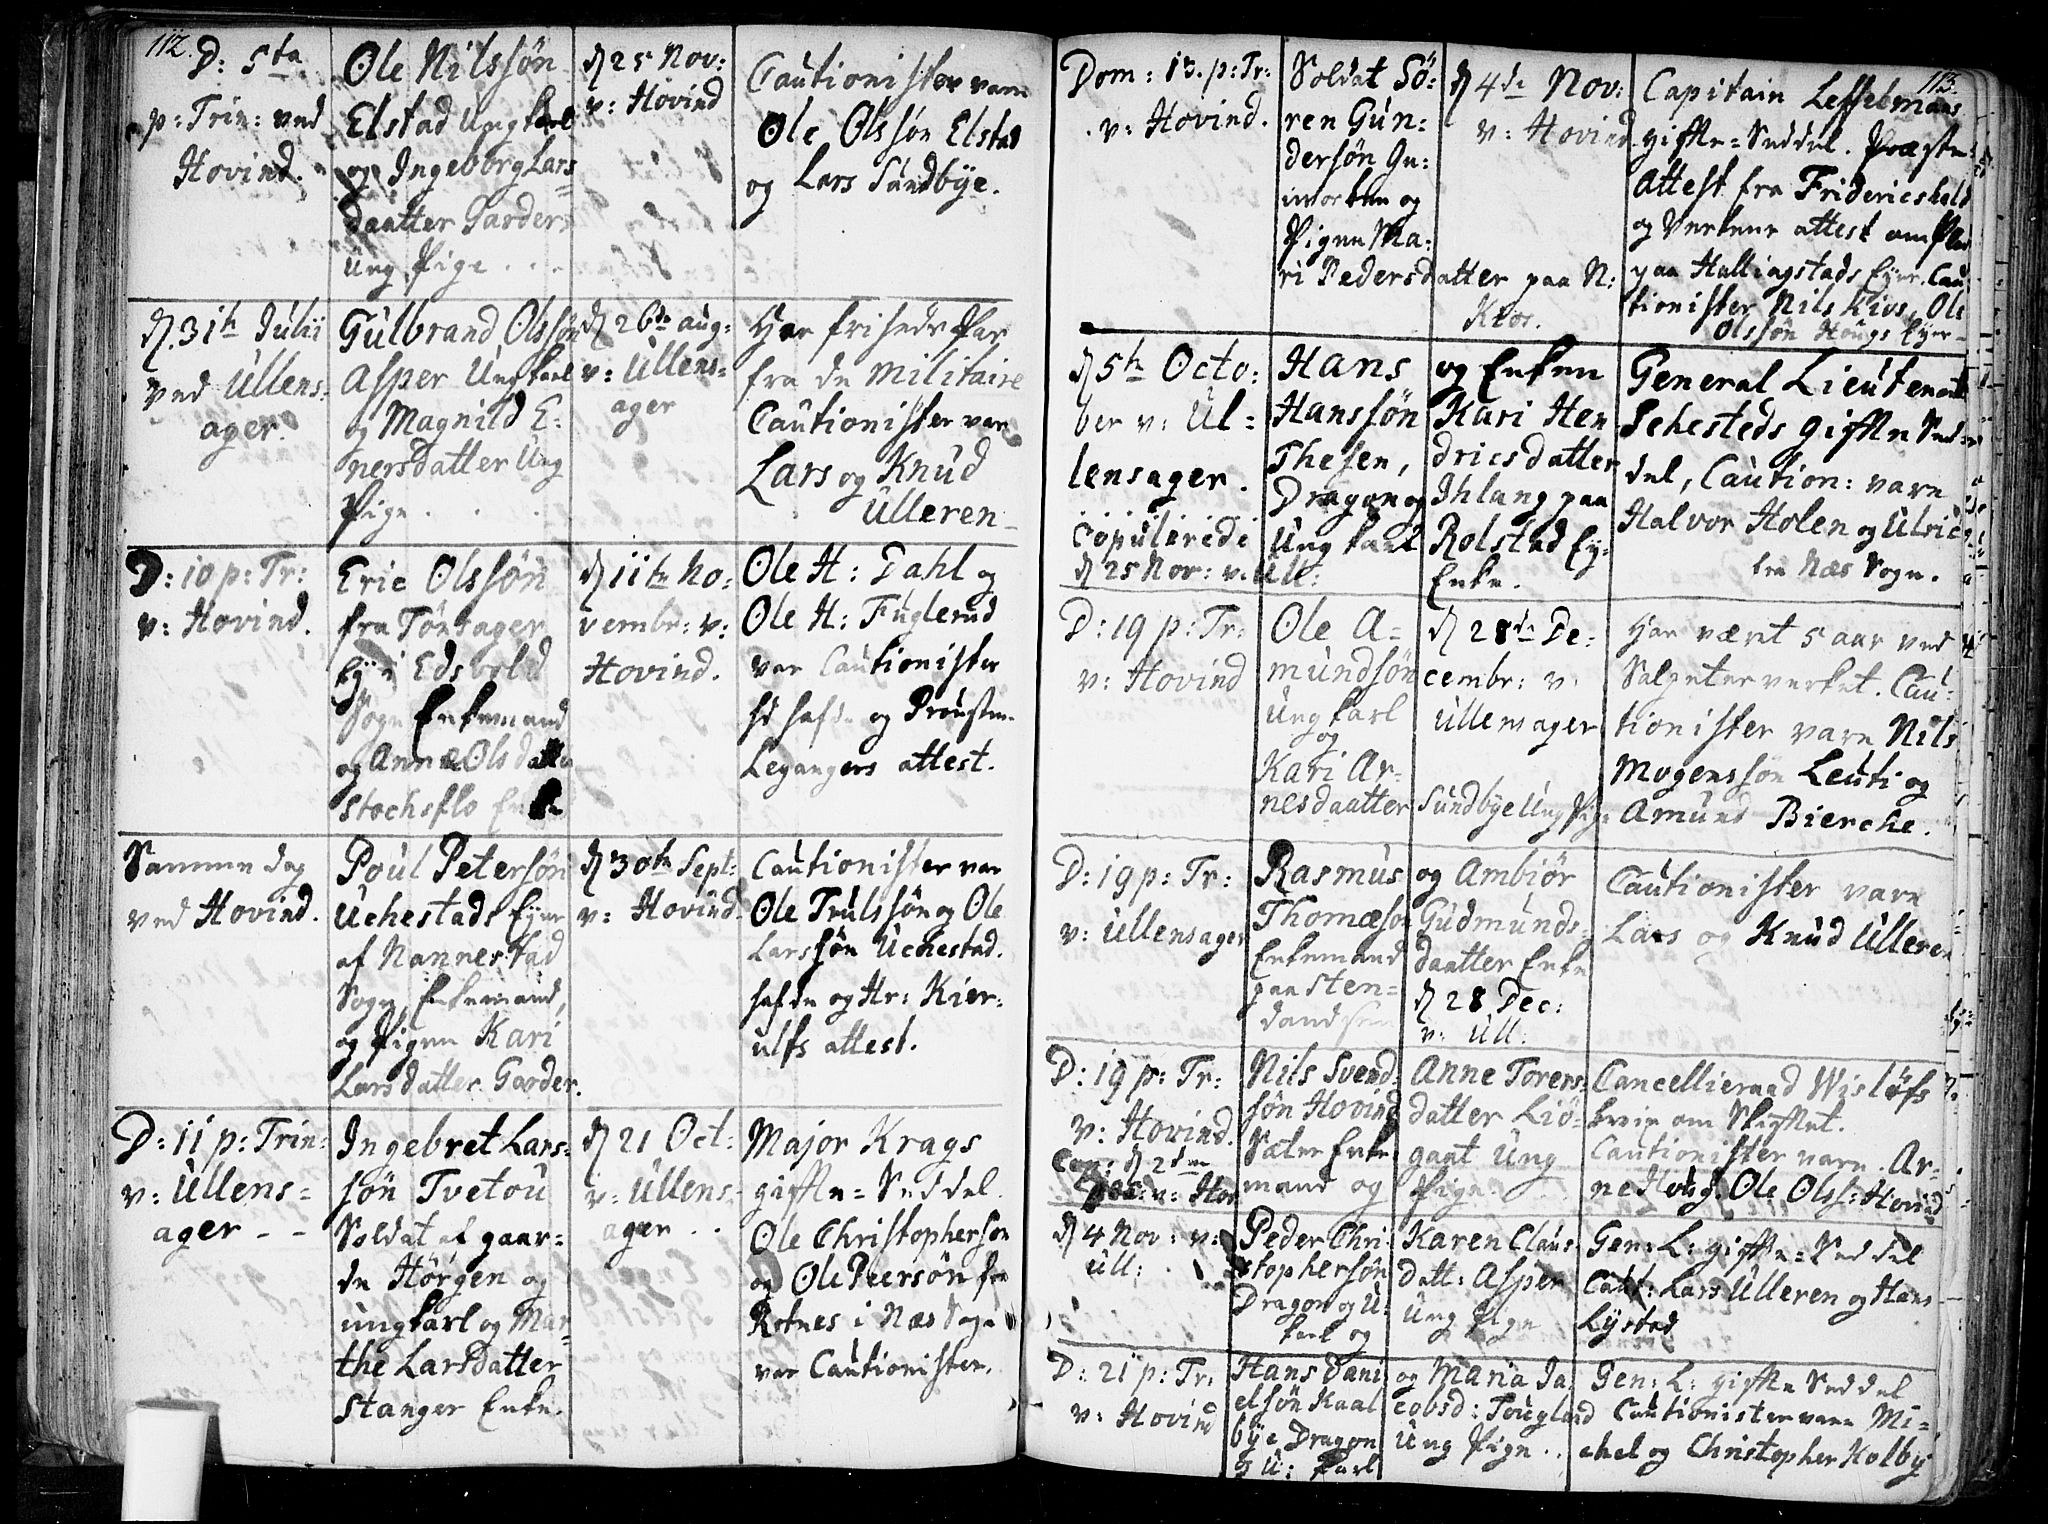 112.
D: 5ta
p: Trin: ved
Hovind.
Ole Nilssøn
Elstad Ungkarl
og Ingeborg Lars=
daatter Garder
ung Pige . . .
d 25 Nov:
v: Hovind
Cautionister vare
Ole Olssøn Elstad
og Lars Sundbye.
d. 31te Julii
ved Ullens=
ager.
Gulbrand Olssøn
Asper Ungkarl
og Magnild E=
nersdatter Ung
Pige . . .
d 26de aug:
v: Ullens=
ager
Har friseds Pas
fra de militaire
Cautionister var
Lars og Knud
Ulleren
D: 10 p: Tr:
v: Hovind.
Eric Olssøn
fra Tønsager
Ey i Edsvold
Sogn Enkemand
og Anne Olsdatter
Stochsflo Enke
d 11te No=
vembr: v:
Hovind.
Ole H: Dahl og
Ole H: Fuglerud
var Cautionister
og Provsten
Legangers attest.
Samme dag
ved Hovind.
Poul Petersøn
Uchestads Eyer
af Nannestad
Sogn, Enkemand,
og Pigen Kari
Larsdatter Gaarder.
d 30te Sept:
v: Hovind.
Cautionister var
Ole Trulssøn og Ole
Larssøn Uchestad.
hafde og Hr: Kier=
ulfs attest.
D: 11 p: Trin:
v: Ullens=
ager - -
Ingebret Lars=
søn Tvetou
Soldat af gaar=
de Hørgen og
ungkarl og Mar=
the Larsdatter
Stanger Enke.
d 21 Oct:
v: Ullens=
ager . .
Major Krags
giffte=Seddel.
Ole Christophersøn
og Ole Peersøn fra
Rotnes i Næs Sogn
var Cautionister.
113.
Dom: 13. p: Tr:
v: Hovind.
Soldat Sø=
ren Gun=
dersøn Gu=
imorken og
Pigen Ma=
ri Pedersdatter paa N:
Klos.
d 4de Nov:
v: Hovind.
Capitain Lesselmans
giffte=Seddel. Præste=
attest fra Fridericshald
og Verkens attest om
paa Hallingstads Eyer. Cau
tionister Nils Kivs, Ole
Olssøn Hougs Eyer
d 5te Octo=
ber v: Ul=
lensager.
copulerede
d 25 Nov: v: Ull:
Hans
Hanssøn
Thesen,
Dragon og
Ung karl
og Enken
Kari Hen
dricsdatter
Ihlang paa
Rolstad Ey=
Enke.
General Lieutenant
Sehesteds giffte Sed=
del, Caution: vare
Halvor Holen og Ulric
fra Næs Sogn.
D: 19 p: Tr:
v: Hovind
Ole A=
mundsøn
Ungkarl
og
Kari Ar=
nesdaatter
d 28de De=
cembr: v:
Ullensager
Sundbye Ung Pige
Har været 5 aar ved
Salpeterverket. Cau=
tionister vare Nils
Mogenssøn Leuti og
Amund Bierche.
D: 19 p: Tr:
v: Ullensager
Rasmus
Thomæsøn
Enkemand
paa Sten=
og Ambiør
Gudmunds=
daatter Enke
d 28 Dec:
v: Ull:
Cautionister vare
Lars og Knud Ulleren
D: 19 p: Tr:
v: Hovind.
Cop: d 2den
Dec: v: Hov.
Nils Svend=
søn Hovind
Sæter Enke
mand og
Anne Torers=
datter Liø=
gaat Ung
Pige.
Cancellieraad Wisløfs
breve om Skifftet.
Cautionister vare. Ar=
ne Hovsg. Ole Olss: Hovind
d 4 Nov: v:
Ull: .
Peder Chri=
stophersøn
Dragon og U:
karl og
Karen Claus
datt: Asper
Ung Pige
Gen: L: giffte=Seddel
Caut: Lars Ulleren og Hans
Lystad
D: 21 p: Tr:
v: Hovind
Hans Dani
elsøn Kaal
bye Dragon
og U: karl
og Maria Ja
cobsd: Tougland
Ung Pige . .
Gen: L: giffte Seddel
Cautionister vare Mi=
chel og Christopher Holby